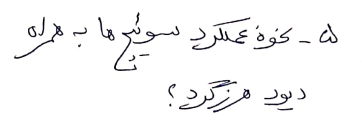 ۵ - نحوهٔ عملکرد سوئیچ ها به همراه
دیود هرزگرد ؟